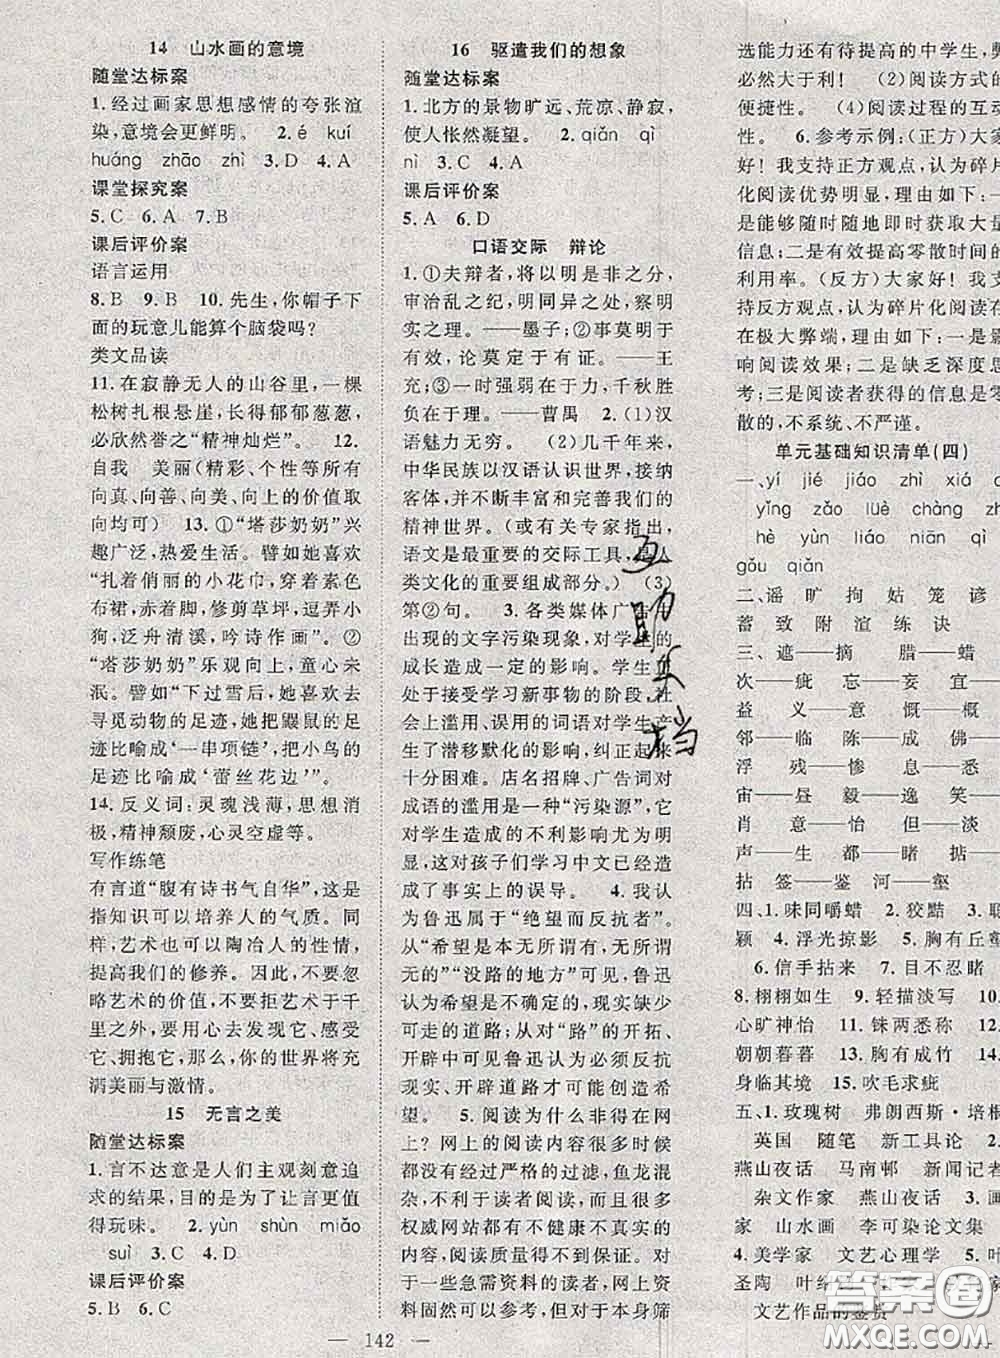 14　山水画的意境
随堂达标案
1. 经过画家思想感情的夸张渲
染,意境会更鲜明。　2. é　kuí
huáng　zhāo　zhì　3. D　4. A
课堂探究案
5. C　6. A　7. B
课后评价案
语言运用
8. B　9. B　10. 先生,你帽子下
面的玩意儿能算个脑袋吗?
类文品读
11. 在寂静无人的山谷里,一棵
松树扎根悬崖,长得郁郁葱葱,
必欣然誉之“精神灿烂”。　12.
自我　美丽(精彩、个性等所有
向真、向善、向美、向上的价值取
向均可)　13. ①“塔莎奶奶”兴
趣广泛,热爱生活。譬如她喜欢
“扎着俏丽的小花巾,穿着碎花
布裙,赤着脚,修剪草坪,逗弄小
狗,泛舟清溪,吟诗作画”。②
“塔莎奶奶”乐观向上,童心未
泯。譬如“下过雪后,她喜欢去
寻觅动物的足迹,把鼹鼠的足迹
比喻成‘一串项链’,把小鸟的
足迹比喻成‘蕾丝花边’”。
14. 反义词:灵魂浅薄,思想消
极,精神颓废,心灵空虚等。
写作练笔
有言道“腹有诗书气自华”,这是
指知识可以培养人的气质。同
样,艺术也可以陶冶人的性情,
提高我们的修养。因此,不要忽
略艺术的价值,不要拒艺术于千
里之外,要用心去发现它、感受
它、拥抱它,那么,你的世界将充
满美丽与激情。
15　无言之美
随堂达标案
1. 言不达意是人们主观刻意追
求的结果,目的是为了让言更值
得玩味。　2. yùn　shùn　miǎo
suì　3. C　4. D
课后评价案
5. B　6. C
16　驱遣我们的想象
随堂达标案
1. 北方的景物旷远、荒凉、静寂,
使人怅然凝望。　2. qiǎn　qì
nì　3. C　4. A
课后评价案
5. A　6. D
口语交际　辩论
1. ①夫辩者,将以明是非之分,
审治乱之纪,明同异之处,察明
实之理。——墨子;②事莫明于
有效,论莫定于有证。——王
充;③一时强弱在于力,千秋胜
负在于理。——曹禺　2. (1)汉
语魅力无穷。　(2)几千年来,
中华民族以汉语认识世界,接纳
客体,并不断丰富和完善我们的
精神世界。(或有关专家指出,
语文是最重要的交际工具,是人
类文化的重要组成部分。)　(3)
第②句。　3. 各类媒体广告
出现的文字污染现象,对学生的
成长造成一定的影响。学生正
处于接受学习新事物的阶段,社
会上滥用、误用的词语对学生产
生了潜移默化的影响,纠正起来
十分困难。店名招牌、广告词对
成语的滥用是一种“污染源”,它
对学生造成的不利影响尤为明
显,这对孩子们学习中文已经造
成了事实上的误导。　4. 我认
为鲁迅属于“绝望而反抗者”。
从“希望是本无所谓有,无所谓
无的”“没路的地方”可见,鲁迅
认为希望是不确定的,现实缺少
可走的道路;从对“路”的开拓、
开辟中可见鲁迅认为必须反抗
现实、开辟道路才可能产生希
望。　5. 阅读为什么非得在网
上?网上的阅读内容很多时候
都没经过严格的过滤,鱼龙混杂,
不利于读者阅读,而且很多
权威网站都有不健康不真实的
内容,阅读质量得不到保证。对
于一些急需资料的读者,网上资
料固然可以参考,但对于本身筛
选能力还有待提高的中学生,弊
必然大于利!　(2)阅读方式的
便捷性。　(4)阅读过程的互动
性。　6. 参考示例:(正方)大家
好!我支持正方观点,认为碎片
化阅读优势明显,理由如下:一
是能够随时随地即时获取大量
信息;二是有效提高零散时间的
利用率。(反方)大家好!我支
持反方观点,认为碎片化阅读存
在极大弊端,理由如下:一是影
响阅读效果;二是缺乏深度思
考;三是读者获得的信息是零
散的,不系统、不严谨。
单元基础知识清单(四)
一、yí　jié　jiáo　zhì　xiá
yǐng　zǎo　lüè　chàng
hè　yùn　liáo　niān　qì
gǒu　qián
二、遥　旷　拘　姑　笼　谚
蓄　致　附　渲　练　诀
三、遮——摘　腊——蜡
次——疵　忘——妄　宜
益　义——意　慨——概
邻——临　陈——成　佛
浮　残——惨　消——悉
宙——昼　毅——逸　笑
肖　意——怡　但——淡
声——生　都——睹　掂
拈　签——鉴　河——壑
四、1. 味同嚼蜡　2. 狡黠　3.
颖　4. 浮光掠影　5. 胸有丘壑
6. 信手拈来　7. 目不忍睹
8. 栩栩如生　9. 轻描淡写　10.
心旷神怡　11. 铢两悉称
朝朝暮暮　13. 胸有成竹　14.
身临其境　15. 吹毛求疵
五、1. 玫瑰树　弗朗西斯·培根
英国　随笔　新工具论
燕山夜话　马南邨　新闻记者
杂文作家　燕山夜话　3. 画
家　山水画　李可染论文集
4. 美学家　文艺心理学　5. 叶
圣陶　叶绍
文艺作品的鉴赏
互助文档
答案圈
MXQE.COM
— 142 —